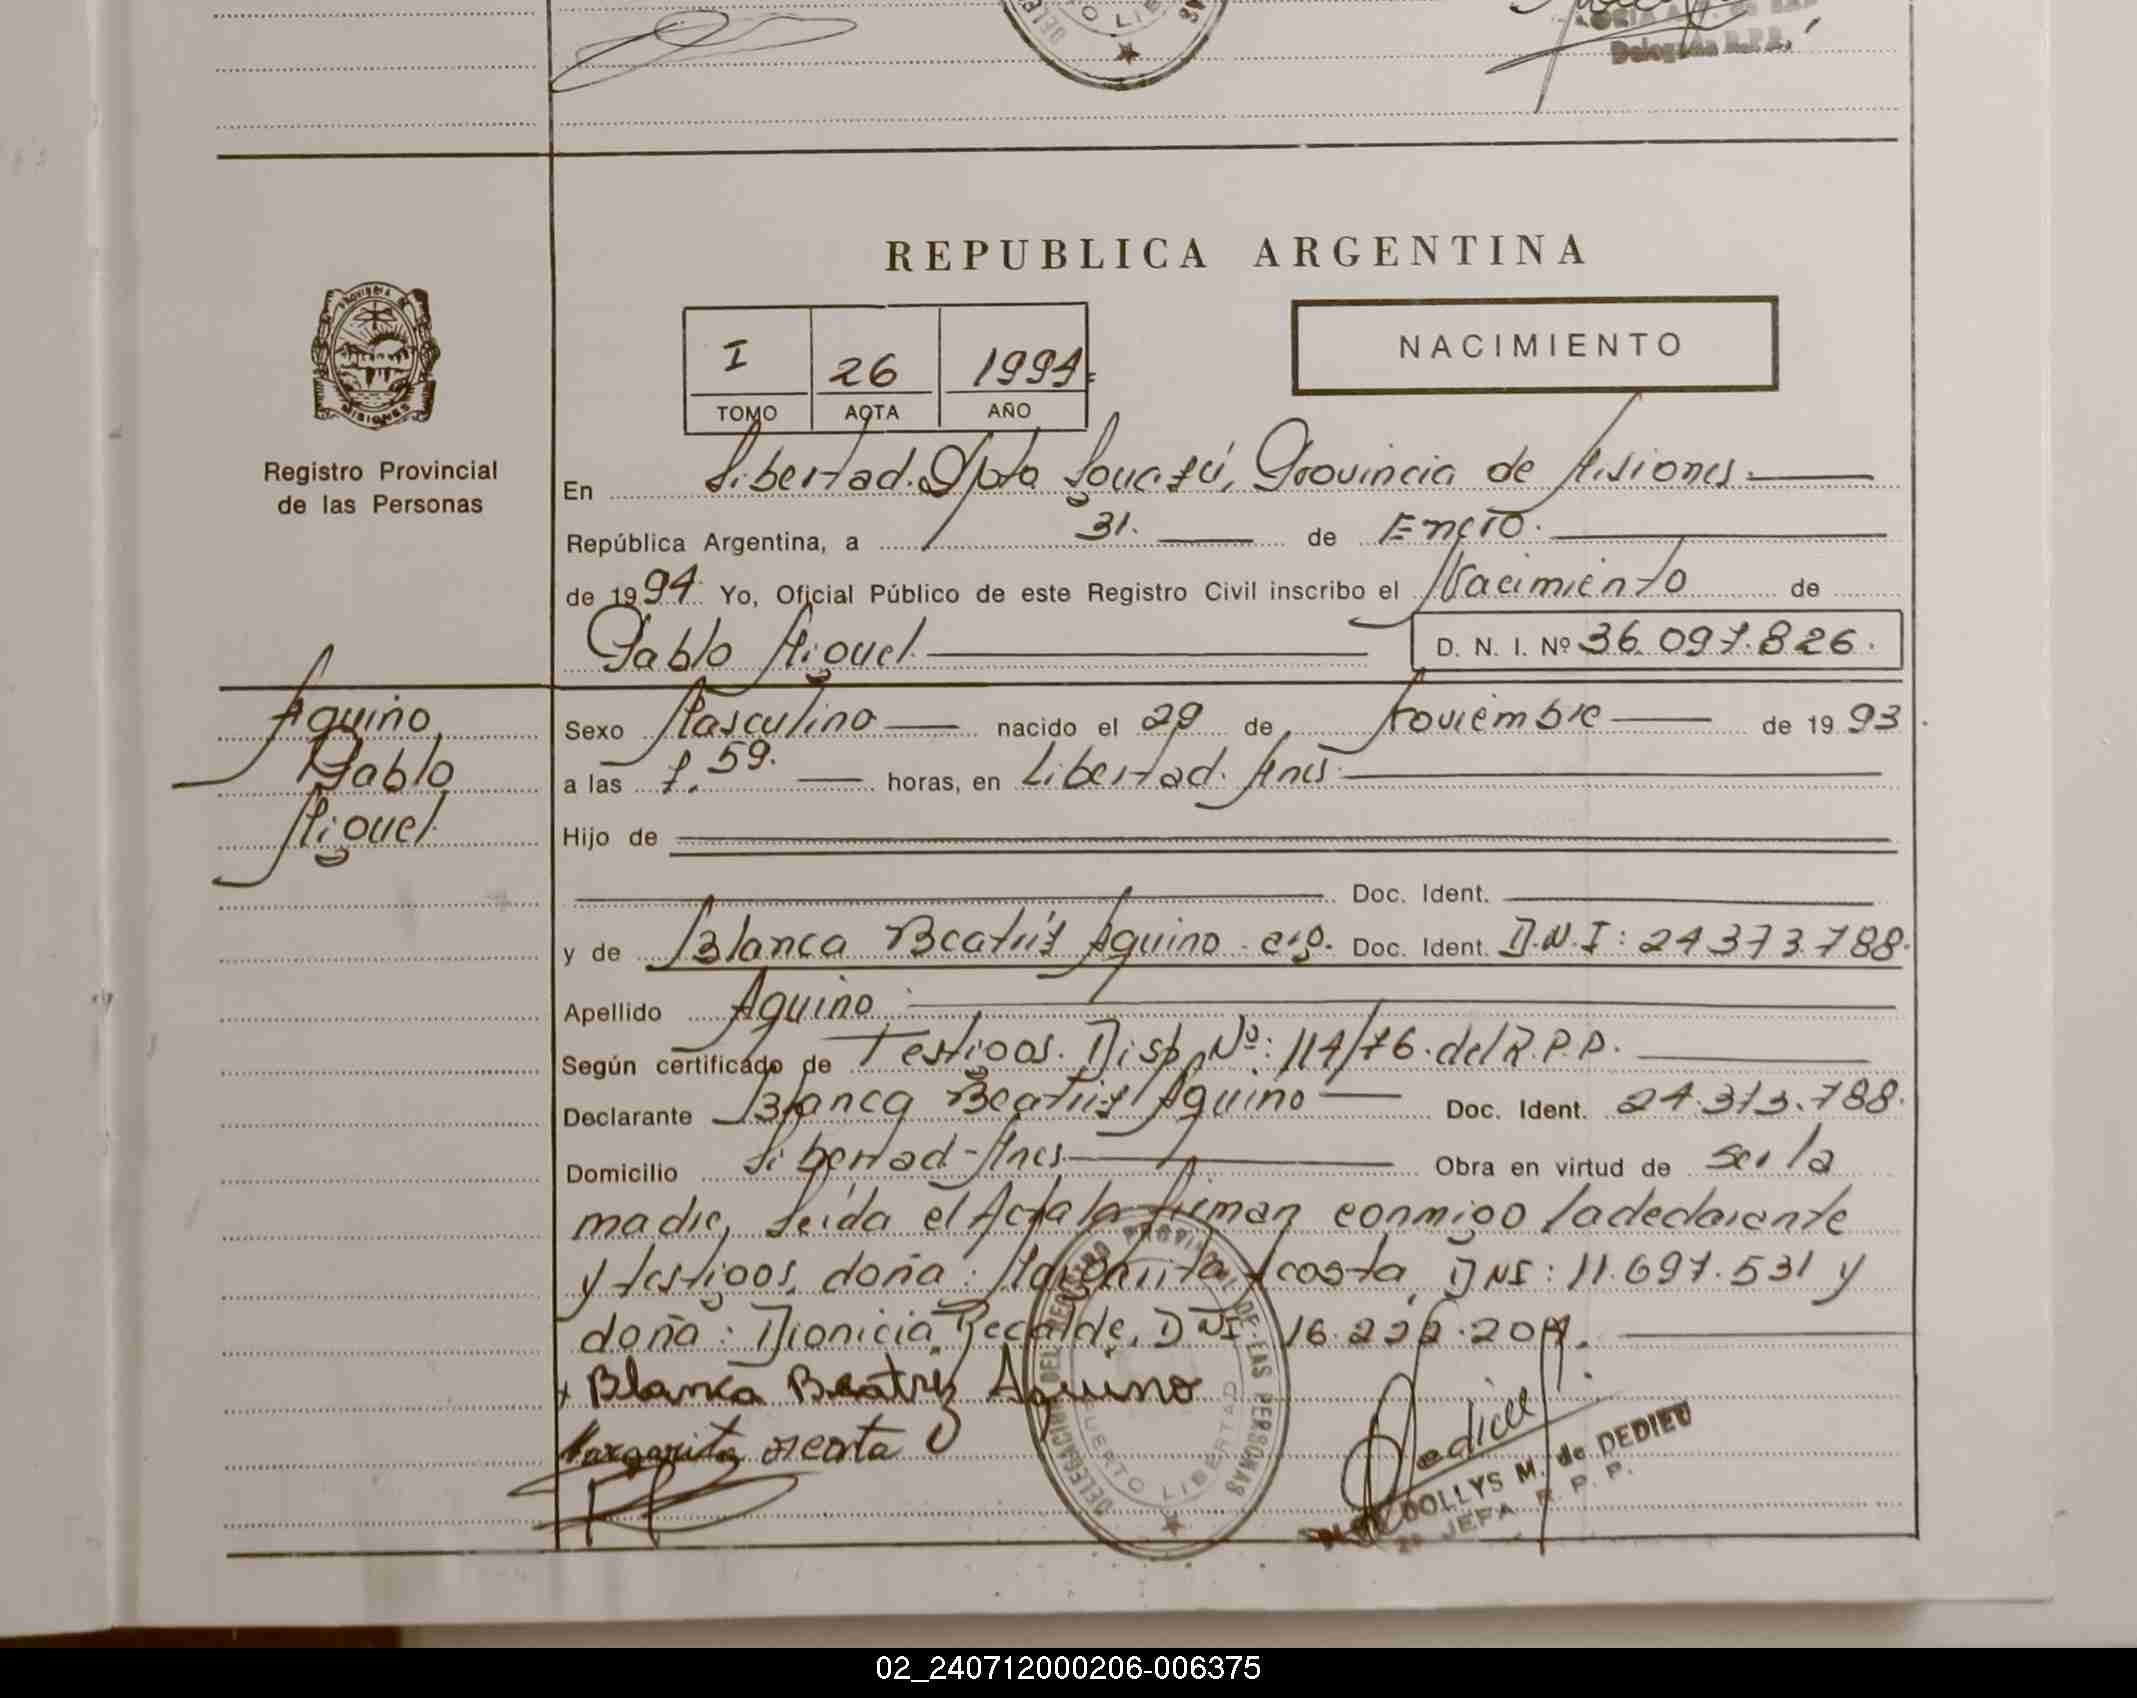 DELE
O LIB
Delegada R.P.P.
REPUBLICA ARGENTINA
PROVINCIA DE
MISIONES
Registro Provincial
de las Personas
I 26 1994
TOMO ACTA AÑO
NACIMIENTO
En Libertad. Dpto Iguazú, Provincia de Misiones.
República Argentina, a 31. de Enero.
de 1994. Yo, Oficial Público de este Registro Civil inscribo el Nacimiento de
Pablo Miguel. D. N. I. Nº 36.097.826.
Aquino,
Pablo
Miguel.
Sexo Masculino nacido el 29 de Noviembre de 1993.
a las 7.59. horas, en Libertad. Mnes.
Hijo de
Doc. Ident.
y de Blanca Beatríz Aquino Doc. Ident. D.N.I: 24373.788.
Apellido Aquino.
Según certificado de Testigos. Disp Nº: 114/76. del R.P.P.
Declarante Blanca Beatriz Aquino Doc. Ident. 24.373.788.
Domicilio Libertad-Mnes. Obra en virtud de ser la
madre, leída el Acta la firman conmigo la declarante
y testigos, doña: Margarita Acosta, DNI: 11.697.531 y
doña: Dionicia Recalde, DNI 16.222.207.
x Blanca Beatriz Aquino
Margarita Acosta
DELEGACION DEL REGISTRO PROVINCIAL DE LAS PERSONAS
PUERTO LIBERTAD
Dedieu
DOLLYS M. de DEDIEU
JEFA R. P. P.
02_240712000206-006375